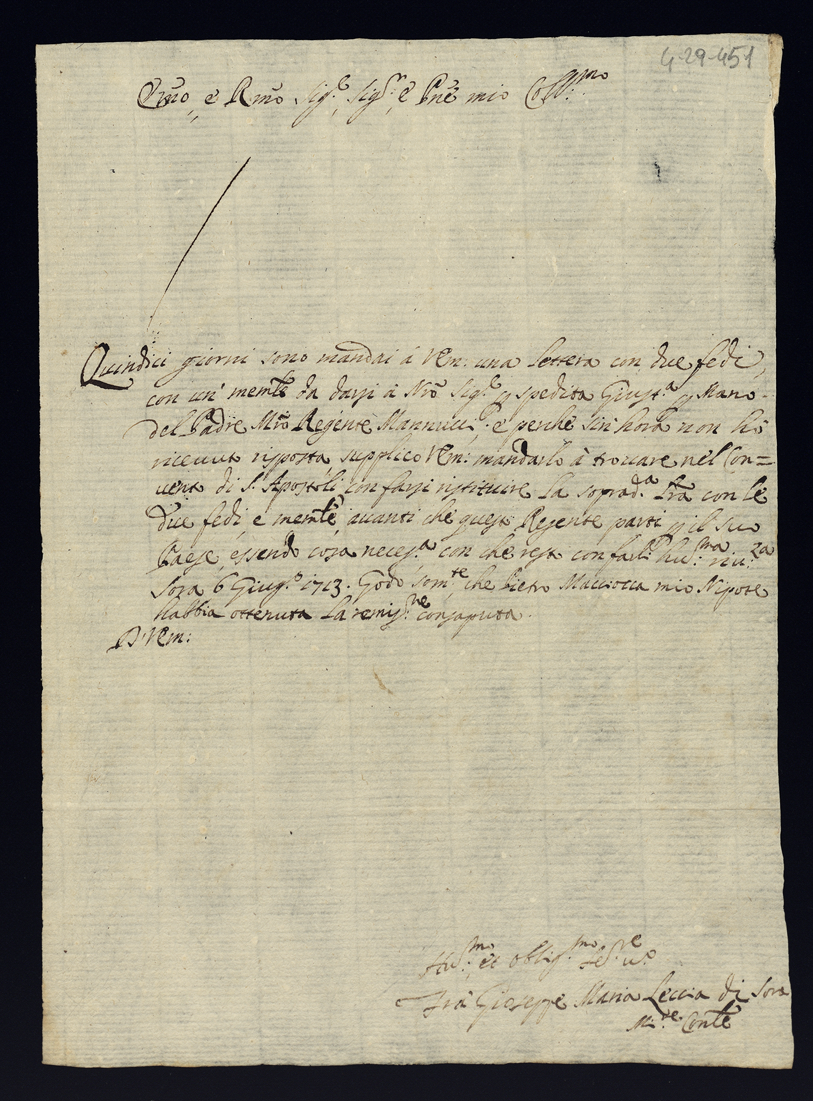 4-29-451
Em̃o, e Rm̃o Sig.re Sig.re e Pñe mio Coll.mo
Quindici giorni sono mandai à Vem: una lettera con due fedi,
con un' memle da darsi à Nrõ Sig.re p spedita Giust.a p Mano
del Padre Mrõ Regente Mannucci. e perche sin'hora non hò
ricevuto risposta supplico Vem: mandarlo à trovare nel Con=
vento di S. Apostoli con farsi ristituire la soprad.a Lrã con le
due fedi, e memle, avanti che questo Regente parti p il suo
Paese, essendo cosa necess.a con che resto con farli hu.ma riu.za
Sora 6 Giug.o 1713. Godo som.te che Pietro Macciocca mio Nipote
habbia ottenuta la remiss.ne consaputa.
D. Vem:
Hu.mo et oblig.mo Se.re v.o
Frà Gioseppe Maria Leccia di Sora
M: Conle